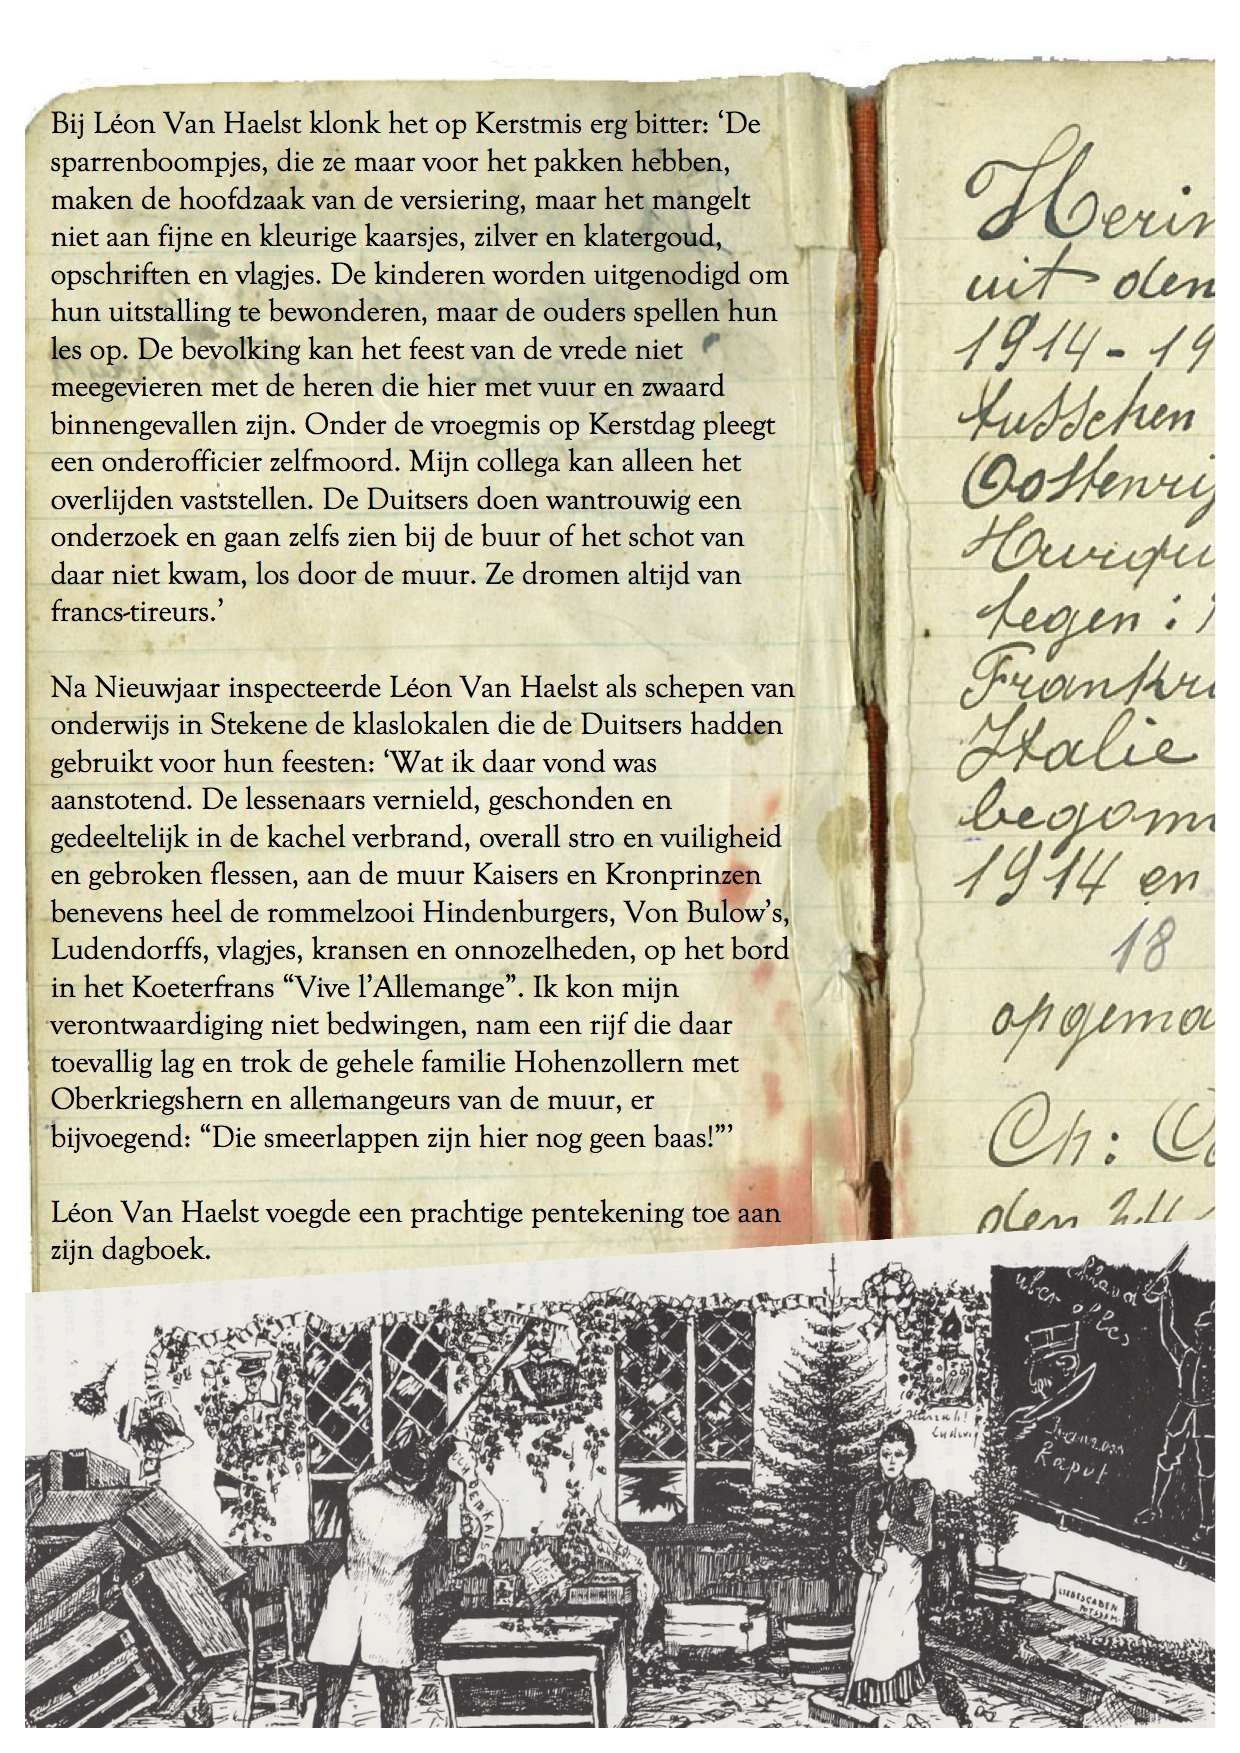 Bij Léon Van Haelst klonk het op Kerstmis erg bitter: ‘De
sparrenboompjes, die ze maar voor het pakken hebben,
maken de hoofdzaak van de versiering, maar het mangelt
niet aan fijne en kleurige kaarsjes, zilver en klatergoud,
opschriften en vlagjes. De kinderen worden uitgenodigd om
hun uitstalling te bewonderen, maar de ouders spellen hun
les op. De bevolking kan het feest van de vrede niet
meegevieren met de heren die hier met vuur en zwaard
binnengevallen zijn. Onder de vroegmis op Kerstdag pleegt
een onderofficier zelfmoord. Mijn collega kan alleen het
overlijden vaststellen. De Duitsers doen wantrouwig een
onderzoek en gaan zelfs zien bij de buur of het schot van
daar niet kwam, los door de muur. Ze dromen altijd van
francs-tireurs.’
Na Nieuwjaar inspecteerde Léon Van Haelst als schepen van
onderwijs in Stekene de klaslokalen die de Duitsers hadden
gebruikt voor hun feesten: ‘Wat ik daar vond was
aanstotend. De lessenaars vernield, geschonden en
gedeeltelijk in de kachel verbrand, overall stro en vuiligheid
en gebroken flessen, aan de muur Kaisers en Kronprinzen
benevens heel de rommelzooi Hindenburgers, Von Bulow’s,
Ludendorffs, vlagjes, kransen en onnozelheden, op het bord
in het Koeterfrans “Vive l’Allemange”. Ik kon mijn
verontwaardiging niet bedwingen, nam een rijf die daar
toevallig lag en trok de gehele familie Hohenzollern met
Oberkriegshern en allemangeurs van de muur, er
bijvoegend: “Die smeerlappen zijn hier nog geen baas!”’
Léon Van Haelst voegde een prachtige pentekening toe aan
zijn dagboek.
Herin
uit den
1914-19
tusschen
Oostenrij
Hurigu
tegen:
Frankri
Italie
begonn
1914 en
18
opgema
Ch:
den
über
alles
Kaput
Hurrah!
Ludwig
LIEBESGABEN
POTSDAM